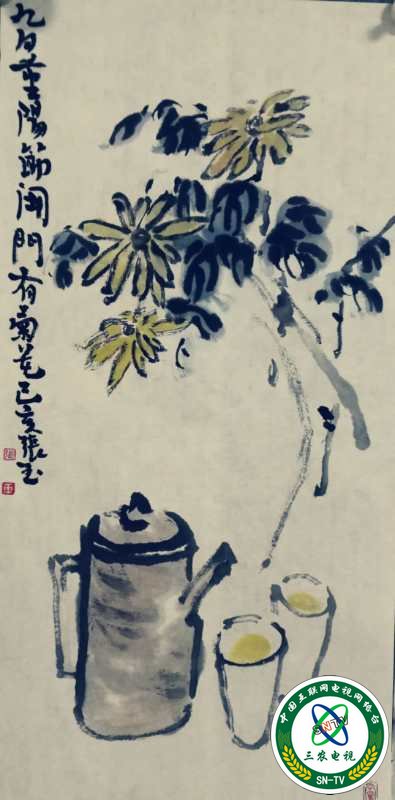 九日重陽節開門有菊花己亥張玉
中国互联网电视网络台
SNTV
三农电视
SN-TV